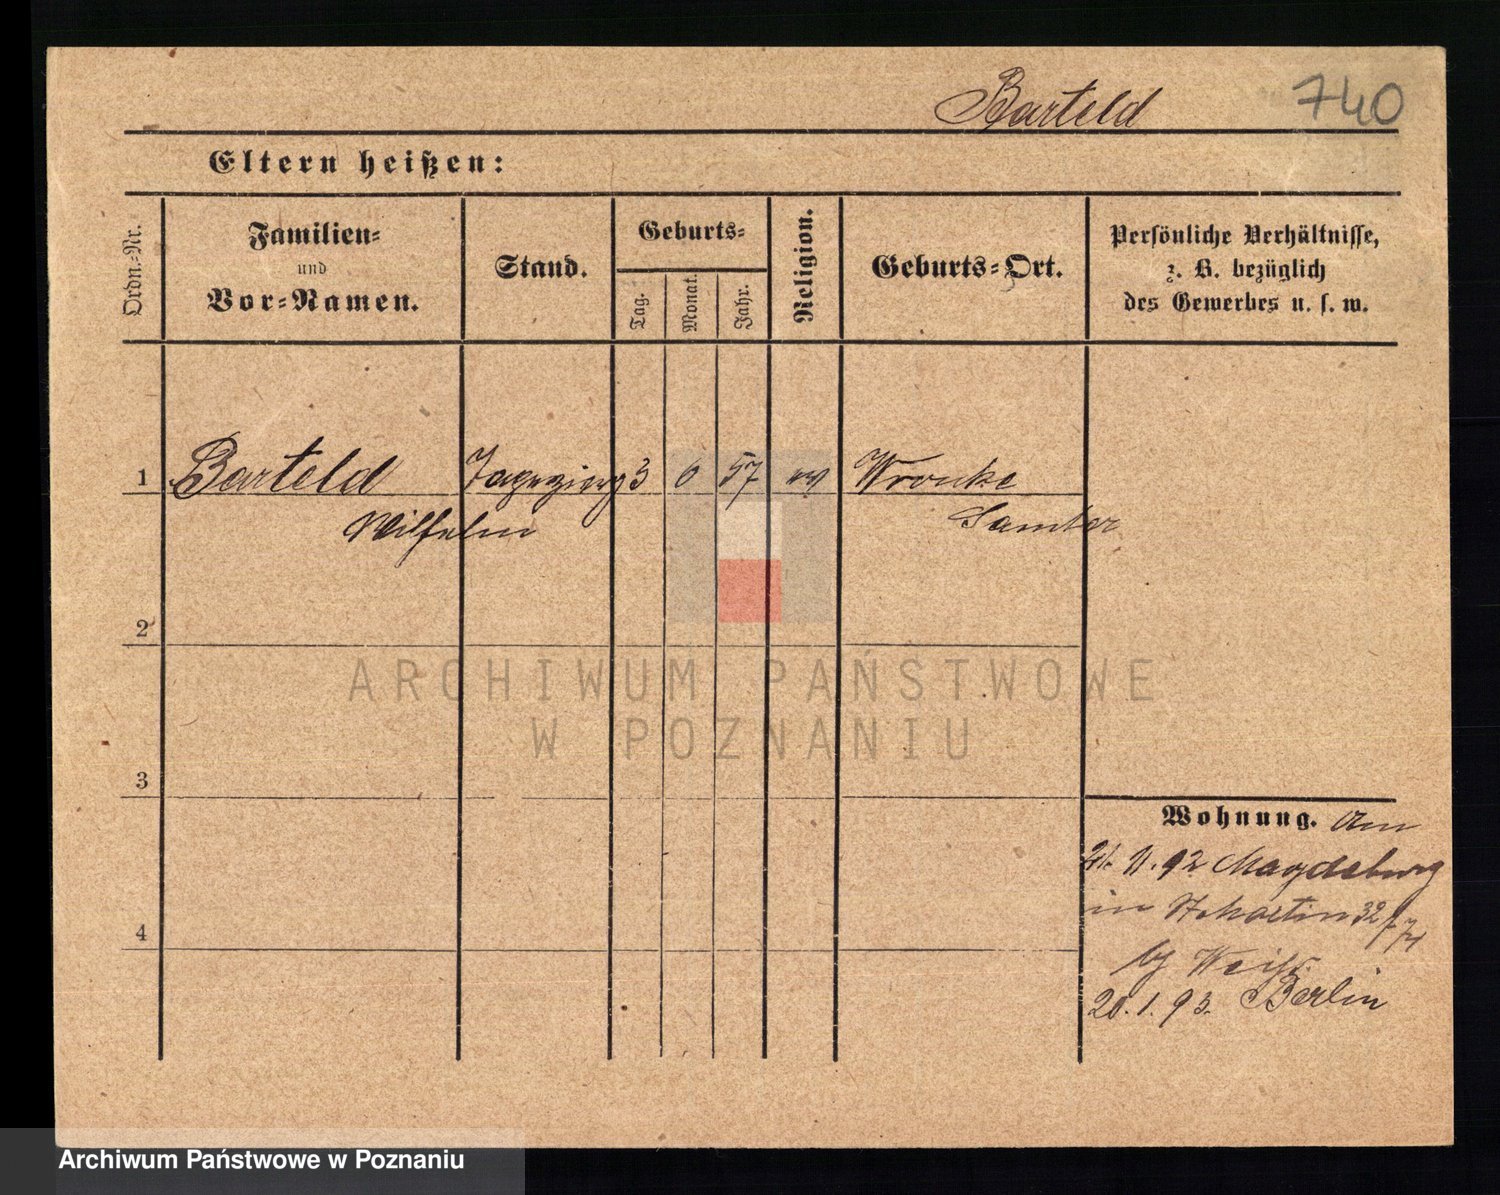 Barteld 740
Eltern heißen:
Ordn.-Nr.
Familien-
und
Vor-Namen.
Stand.
Geburts-
Tag.
Monat.
Jahr.
Religion.
Geburts-Ort.
Persönliche Verhältnisse,
z. B. bezüglich
des Gewerbes u. s. w.
1 Barteld 3 6 57 ev Wronke
Wilhelm Samter
2
3
4
Wohnung. Am
11.92 Magdeburg
in St Martin 32
bei Weiß.
20.1.93. Berlin
ARCHIWUM PAŃSTWOWE
W POZNANIU
Archiwum Państwowe w Poznaniu